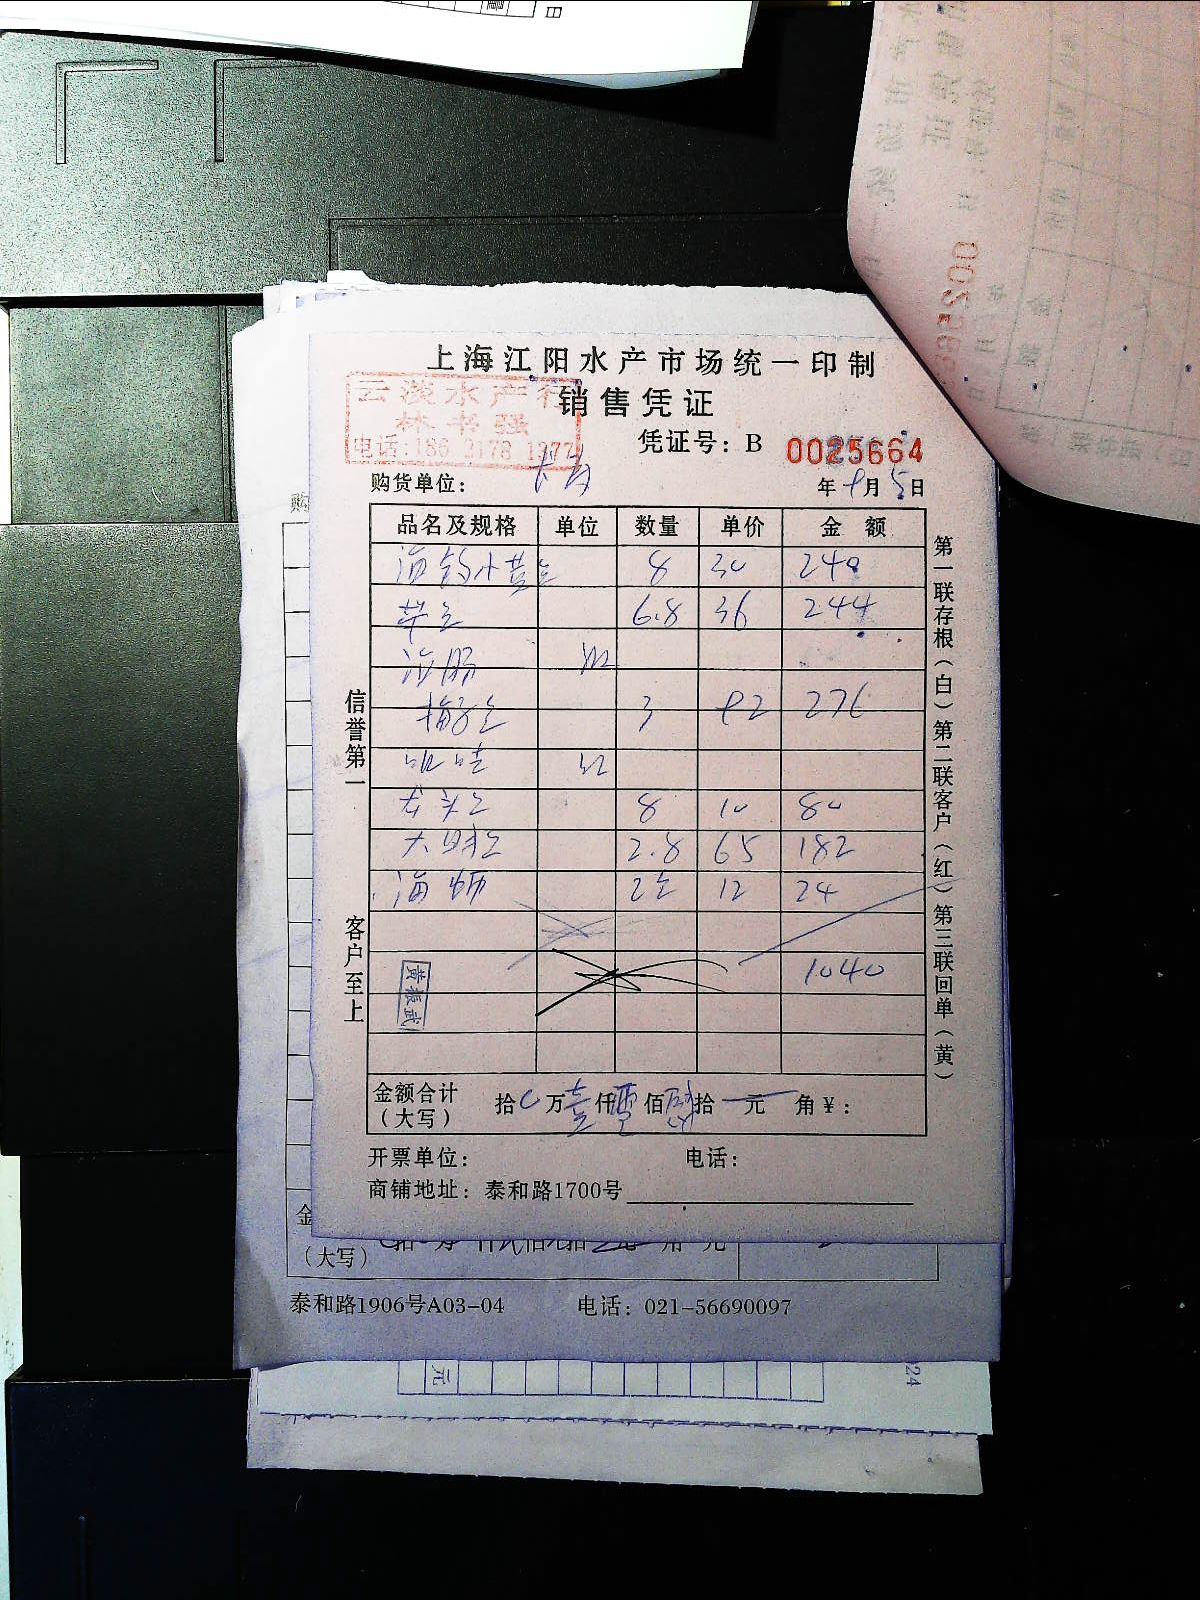 上海江阳水产市场统一印制
销售凭证
云淡水产行
林书强
电话:186 2178 1377
凭证号：B 0025664
购货单位：
年9月5日
品名及规格 单位 数量 单价 金额
海钓小黄鱼 8 30 240
6.8 36 244
海肠
梅子鱼 3 92 276
龙头鱼 8 10 80
大明鱼 2.8 65 182
海蛎 2 12 24
1040
黄振武
金额合计（大写） 拾 万壹仟零佰肆拾 元 角￥：
开票单位： 电话：
商铺地址：泰和路1700号
信誉第一
客户至上
第一联存根（白）第二联客户（红）第三联回单（黄）
（大写）
泰和路1906号A03-04 电话：021-56690097
元
24